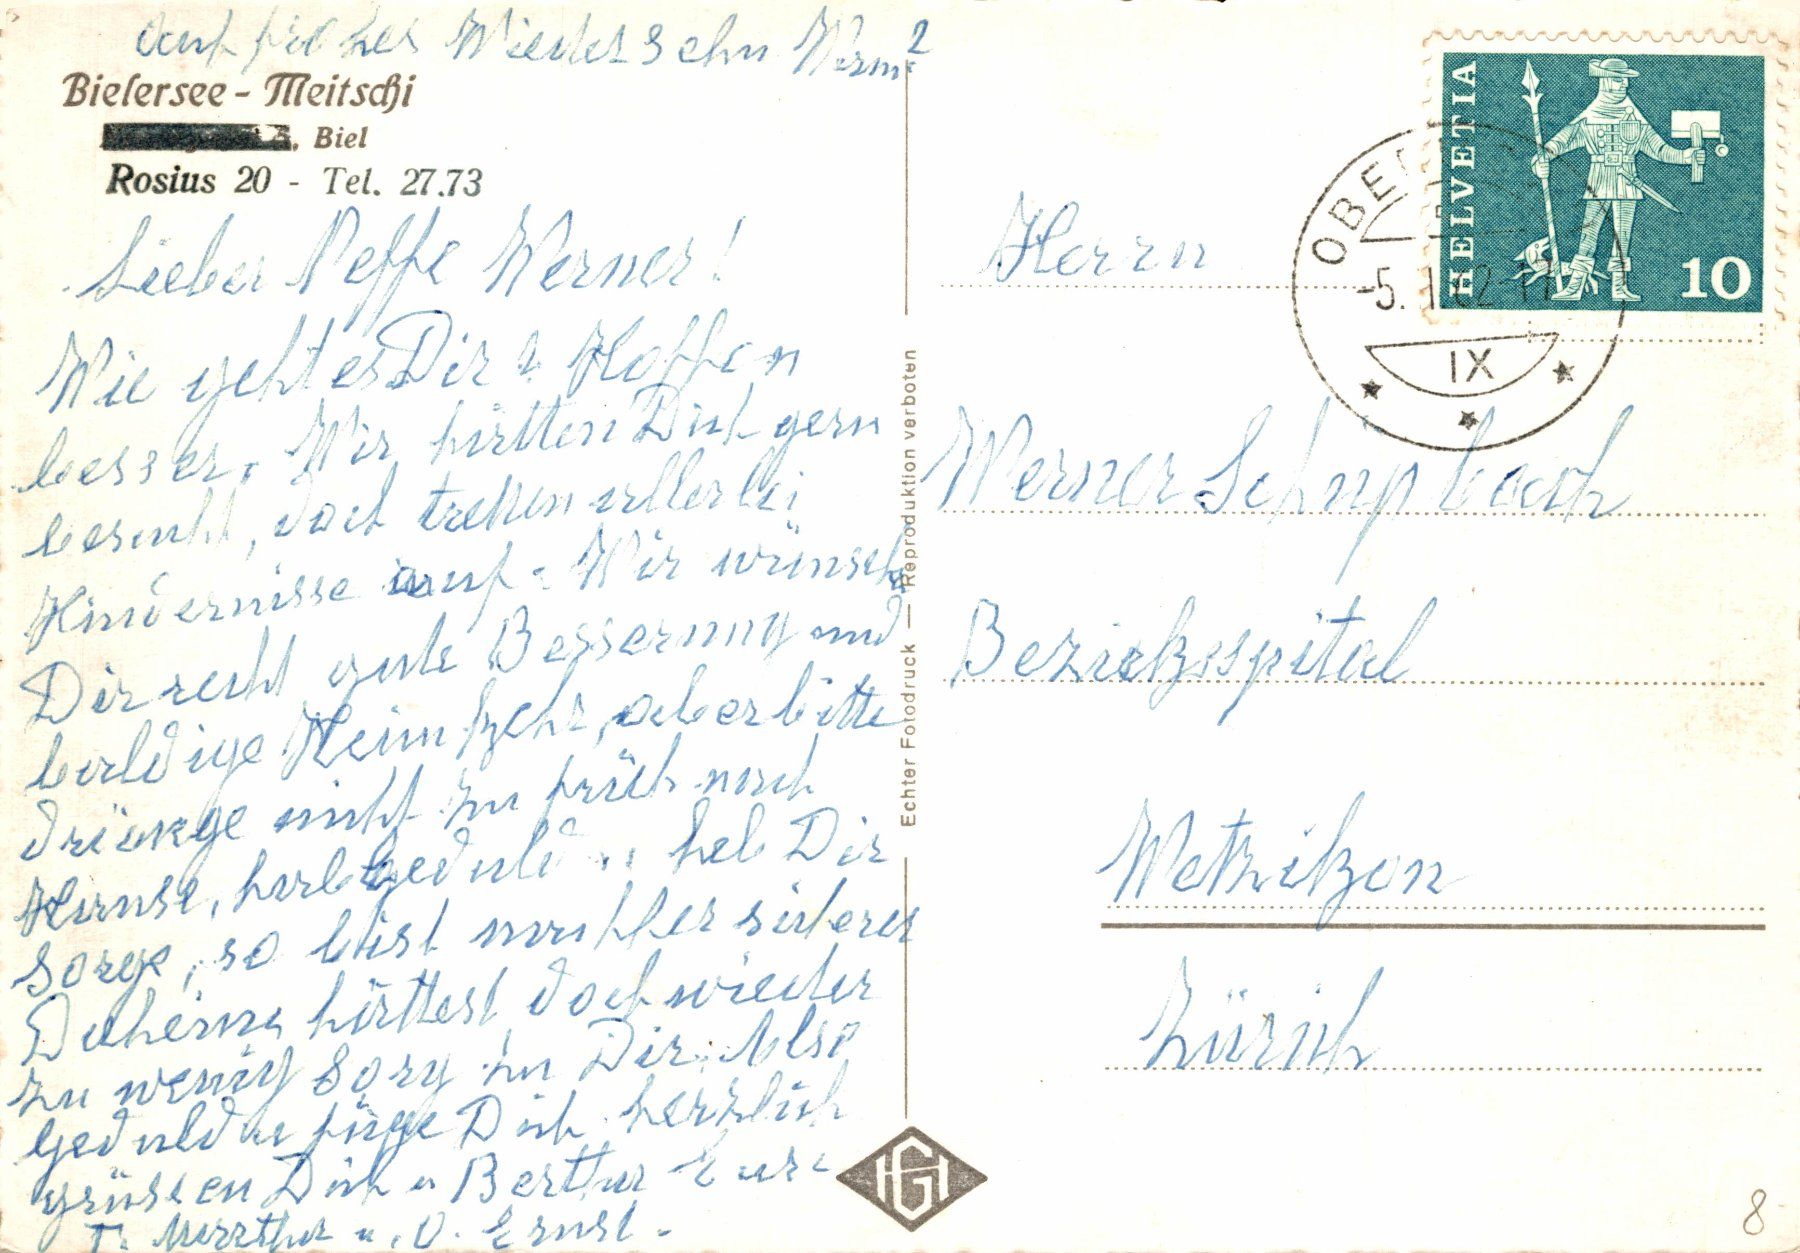 auf frohes Wiedersehn
Bielersee - Meitschi
, Biel
Rosius 20 - Tel. 27.73
Lieber Neffe Werner!
Wie geht es Dir? Hoffen
besser. Wir hätten Dich gern
besucht, doch treten allerlei
Hindernisse auf. Wir wünsch
Dir recht gute Besserung und
baldige Heimkehr, aber bitte
dränge nicht zu früh nach
Hause, hab Geduld u. heb Dir
Sorge, so bist nachher sicherer
Daheim hättest doch wieder
zu wenig Sorg zu Dir. Also
Geduld u füge Dich. herzlich
grüssen Dich u Bertha Eure
T. Martha u. O. Ernst.
HELVETIA
10
OBE
-5. 1. 62-17
IX
Herrn
Werner Schüpbach
Bezirksspital
Wetzikon
Zürich
Echter Fotodruck — Reproduktion verboten
HGI
8